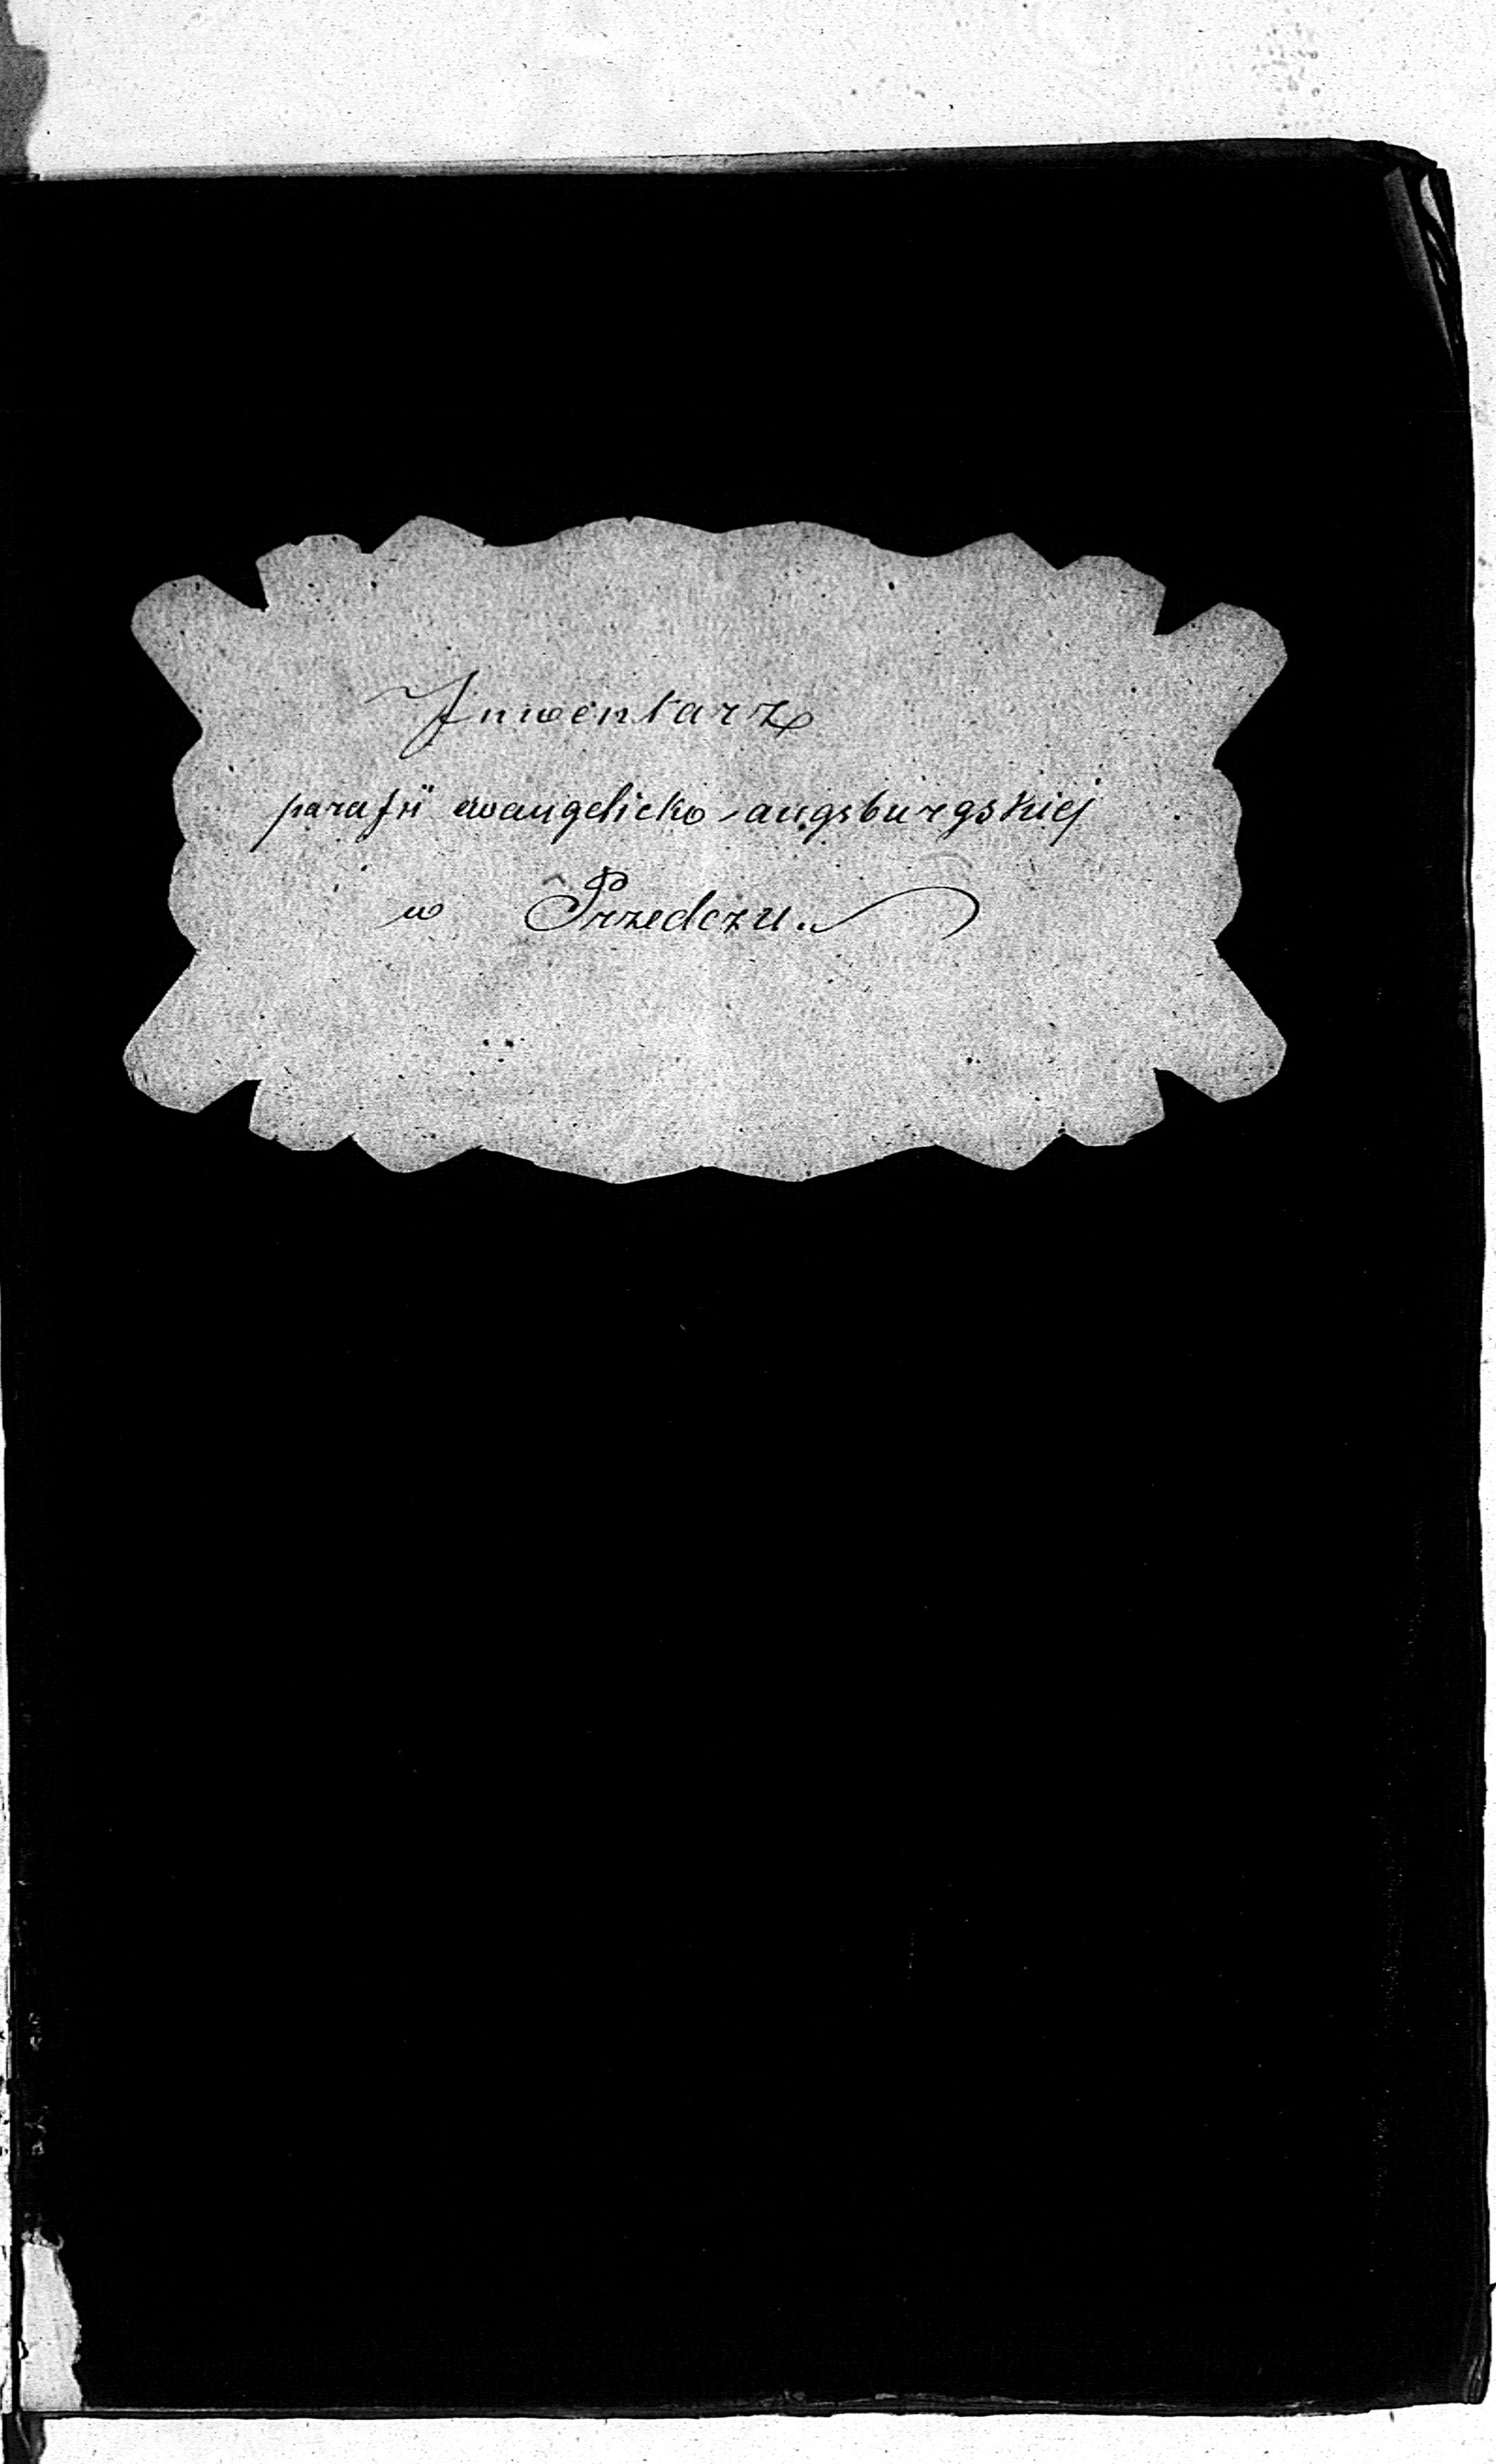 Inwentarz
parafii ewangelicko-augsburgskiej
w Przedczu.